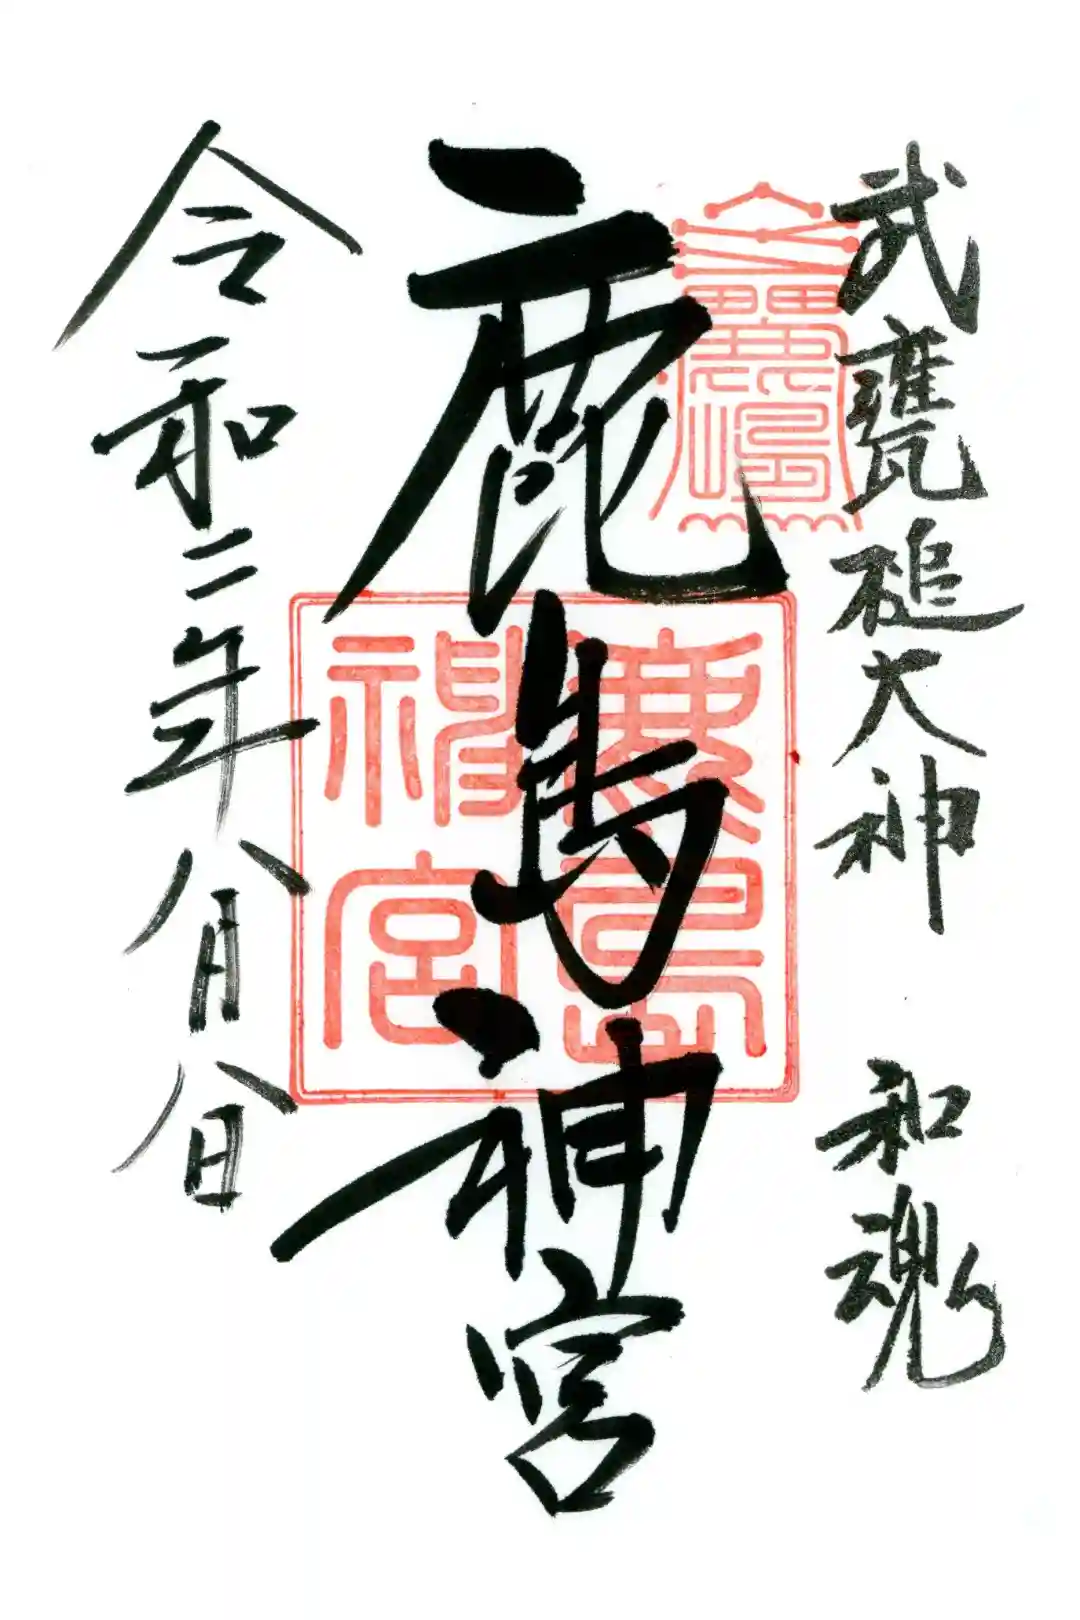 武甕槌大神 和魂
鹿島神宮
鹿島神宮
令和二年八月八日